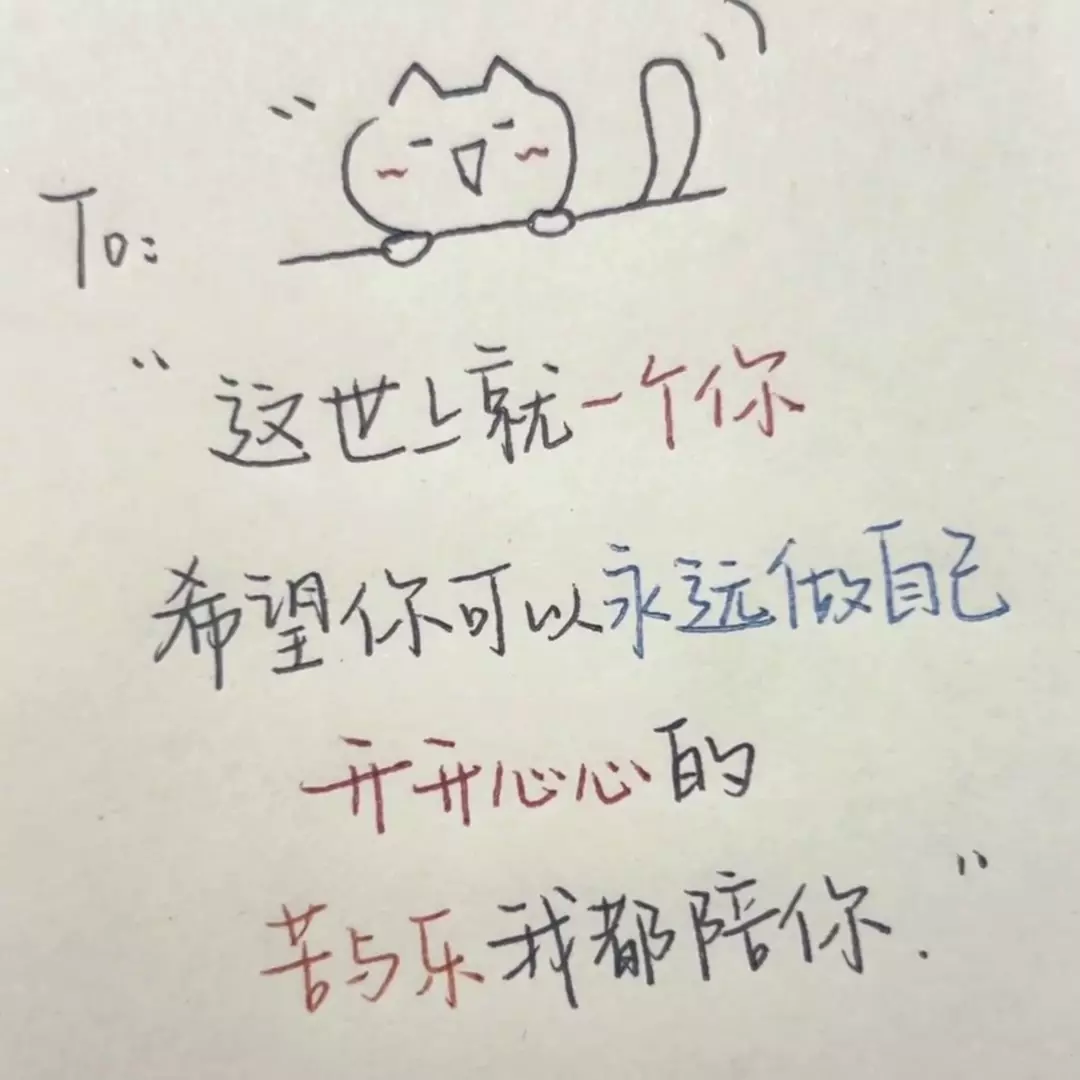 To:
"这世上就一个你
希望你可以永远做自己
开开心心的
苦与乐我都陪你."